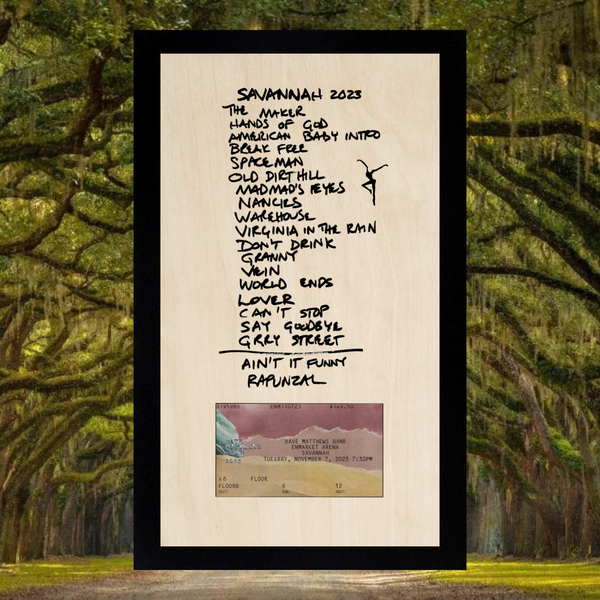 SAVANNAH 2023
THE MAKER
HANDS OF GOD
AMERICAN BABY INTRO
BREAK FREE
SPACEMAN
OLD DIRT HILL
MADMAD'S EYES
NANCIES
WAREHOUSE
VIRGINIA IN THE RAIN
DON'T DRINK
GRANNY
VEIN
WORLD ENDS
LOVER
CAN'T STOP
SAY GOODBYE
GREY STREET
AIN'T IT FUNNY
RAPUNZAL
DAVE MATTHEWS BAND
ENMARKET ARENA
SAVANNAH
TUESDAY, NOVEMBER 7, 2023 7:30PM
x6 FLOOR
FLOOR6 6 12